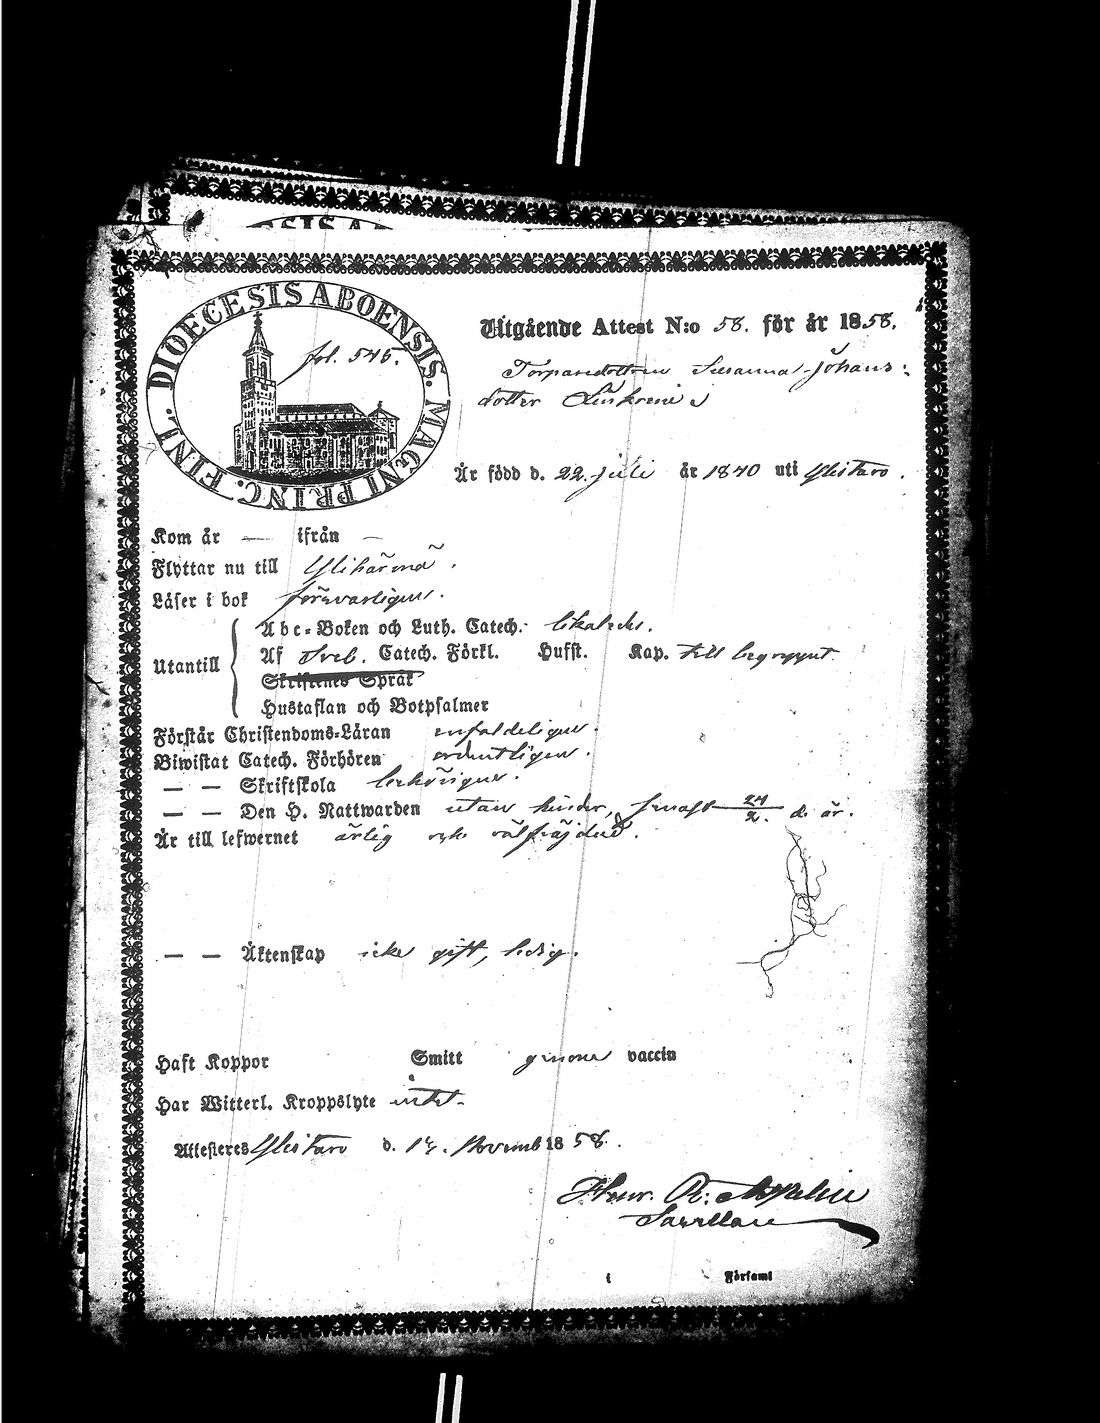 ESIS A
DIOECESIS ABOENSIS. MAGNI PRINC. FINL.
fol. 545.
Utgående Attest N:o 58. för år 1858.
Torparedottren Susanna Johans:
dotter
Är född d. 22 juli år 1840 uti Ylistaro.
Kom år — ifrån —
Flyttar nu till Ylihärmä.
Läser i bok försvarligen.
Utantill
Abc-Boken och Luth. Catech.
Af Sveb. Catech. Förkl. Hufst. Kap. till begreppet
Skriftenes Språk
Hustaflan och Botpsalmer
Förstår Christendoms-Läran enfaldeligen.
Biwistat Catech. Förhören ordentligen.
— — Skriftskola behörigen.
— — Den H. Nattwarden utan hinder, senast 24/2. d. år.
Är till lefwernet ärlig och välfräjdad.
— — Äktenskap icke gift, ledig.
Haft Koppor Smitt genom vaccin
Har Witterl. Kroppslyte intet.
Attesteres Ylistaro d. Novemb 1858.
Henr. 
i Församl